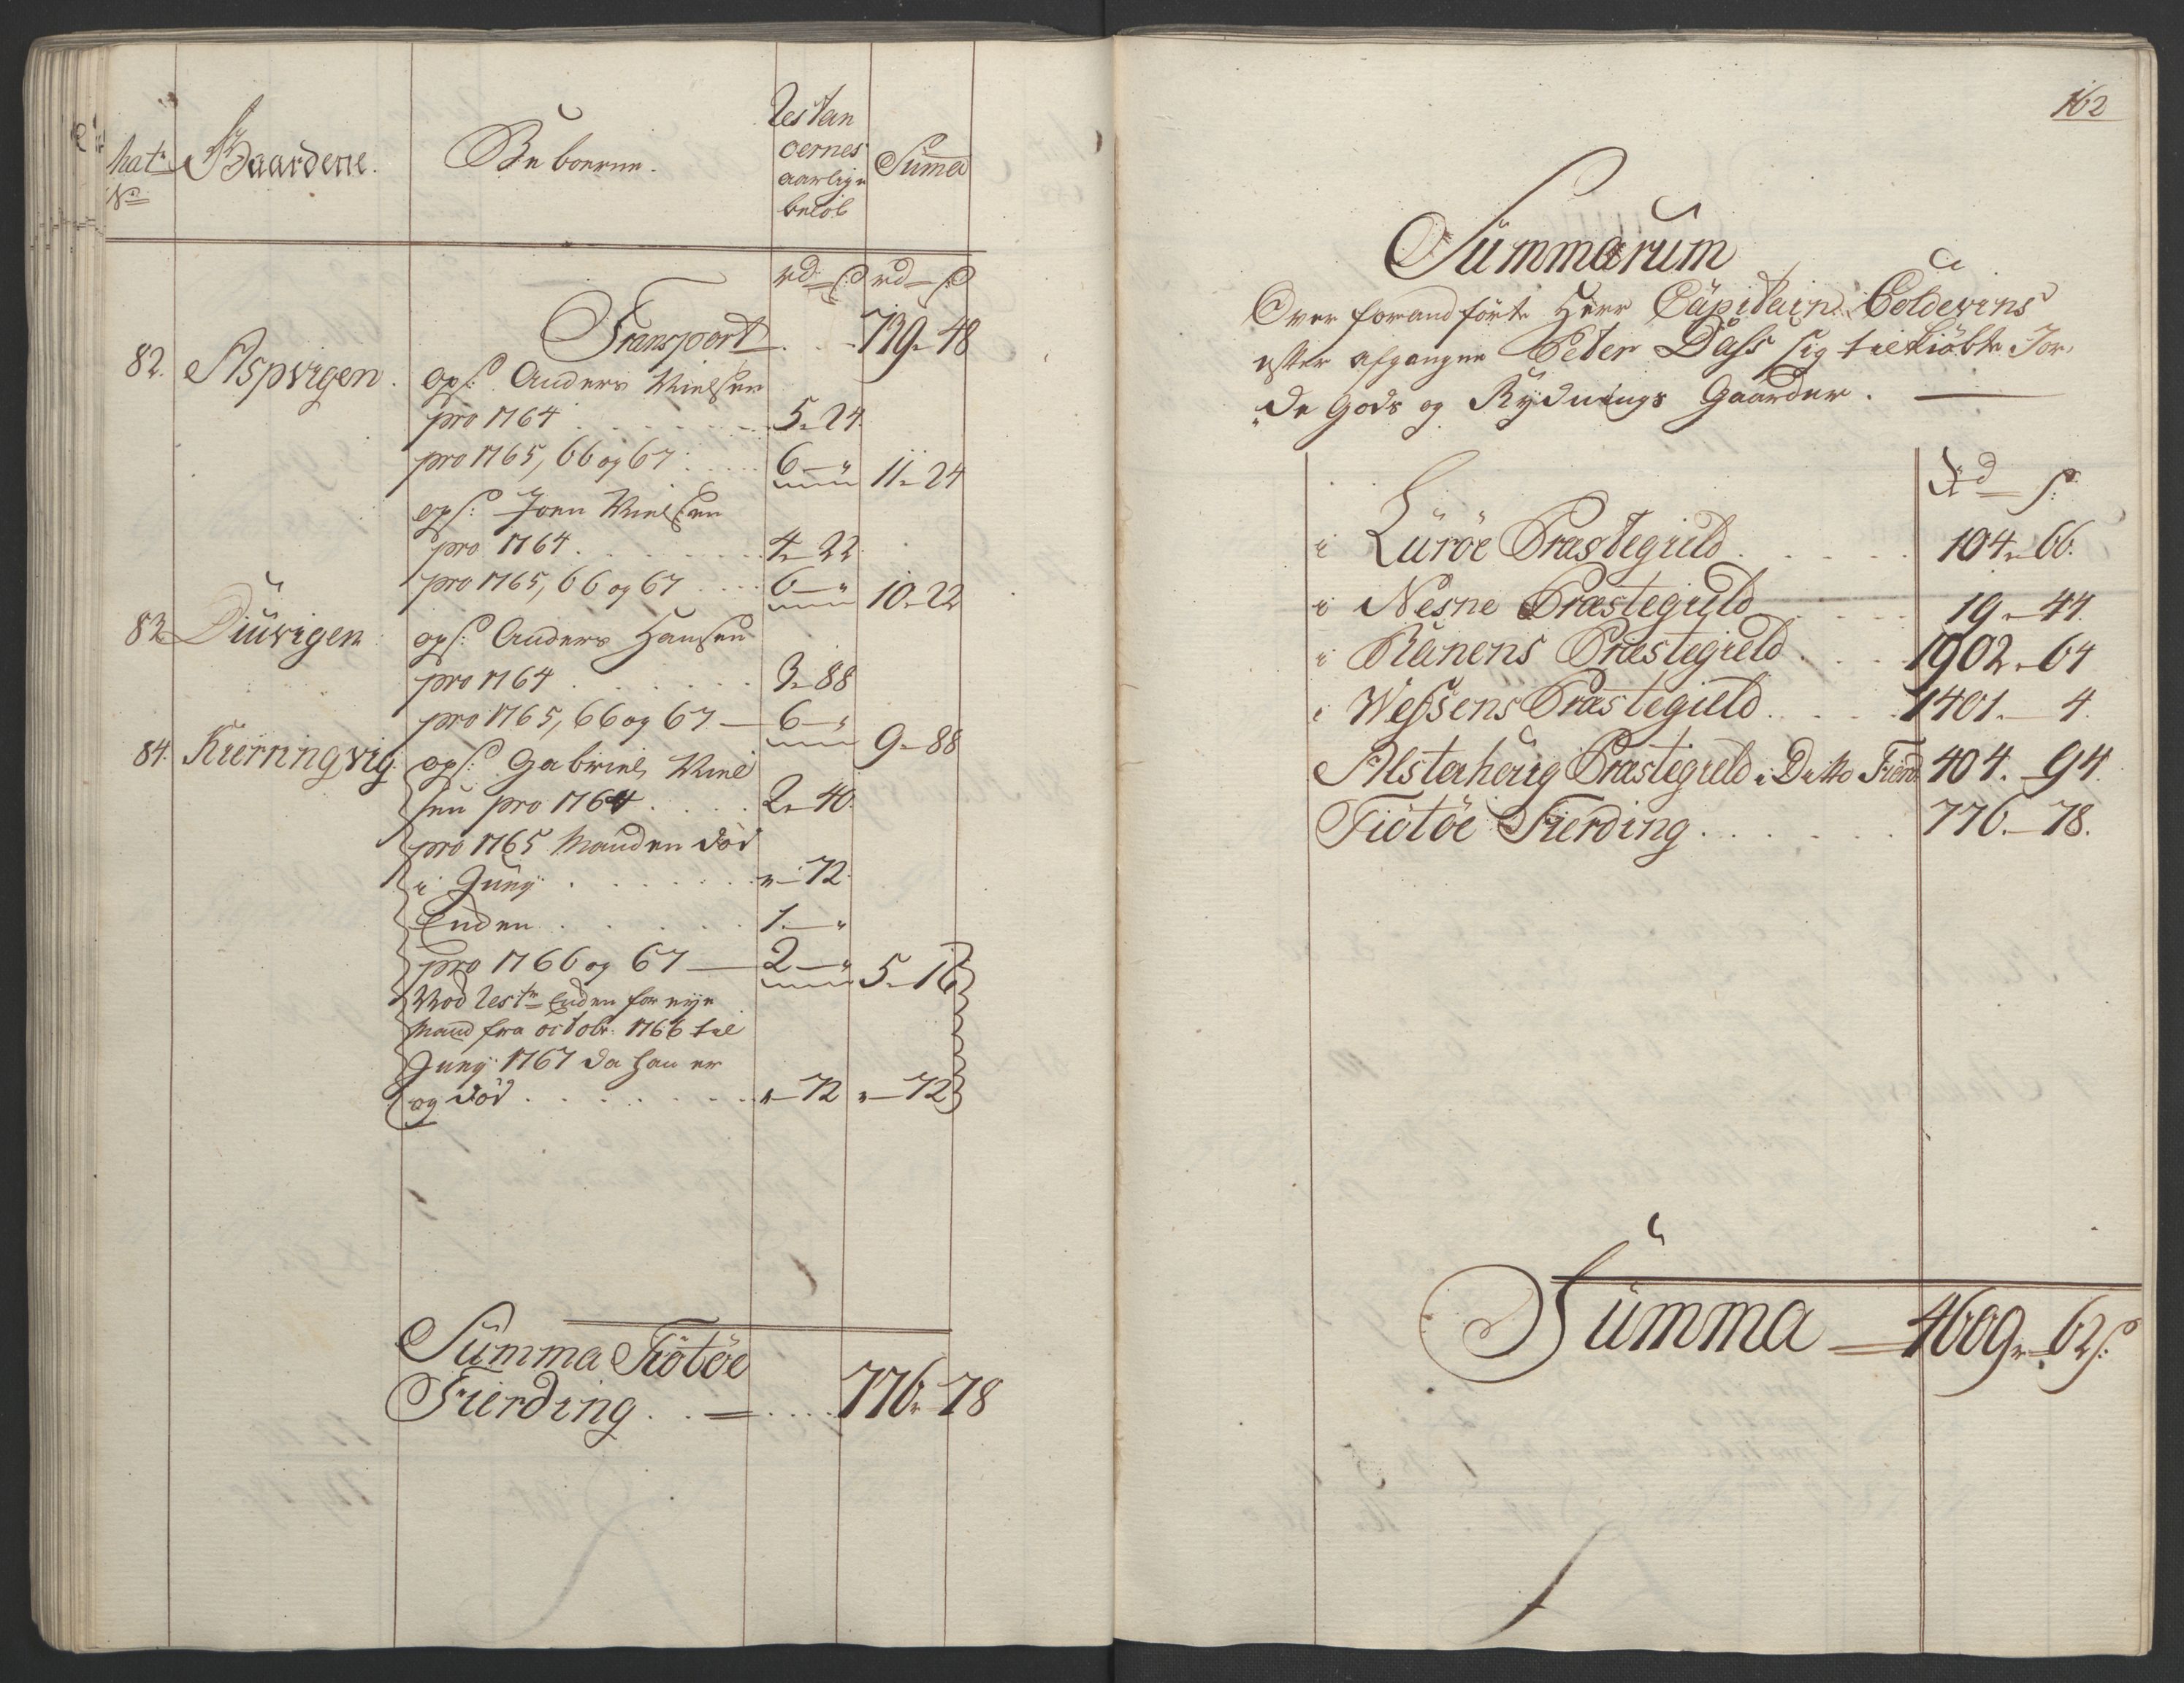 Mat:
No
Gaardene.
Beboerne.
Restan
cernes
aarlige
beløb
Suma
rd – s: rd – s:
Transport . . 739 – 48
82. Aspvigen. ops: Anders Nielsen
pro 1764 . . . . . 5 – 24.
pro 1765, 66 og 67 . . . . 6 – " 11 – 24
ops: Joen Nielsen
pro 1764 . . . . . 4 – 22.
pro 1765, 66 og 67 . . . 6 – " 10 – 22
83 Diuvigen ops: Anders Hansen
pro 1764 . . . . . 3 – 88
pro 1765, 66 og 67 — 6 – " 9 – 88
84. Kierringvig. ops: Gabriel Niel
sen pro 1764 . . . . 2 – 40.
pro 1765 Manden død
i Juny . . . . . " – 72.
Enden . . . . . 1 – "
pro 1766 og 67 — 2 – " 5 – 16
Nod Rest: Enden for nye
Mand fra octobr: 1766 til
Juny 1767 da han er
og død . . . . . " – 72 " – 72
Summa Tiøtøe
Fierding . . = . . . . 776 – 78
162
Summarum
Over foranførte Herr Capitain Coldevins
efter afgangne Peter Dass sig tilkiøbte Jor-
de Gods og Rydnings Gaarder. —
Rd – s:
i Lurøe Præstegield . . . . . 104 – 66.
i Nesne Præstegield . . . . 19 – 44.
i Ranens Præstegield . . . 1902 – 64
i Wefsens Præstegield . . . . 1401. – 4.
Alstahoug Præstegield i Ditto Fierd 404. – 94.
Tiøtøe Fierding . . . . . 776. – 78.
Summa — 4609 – 62 s: